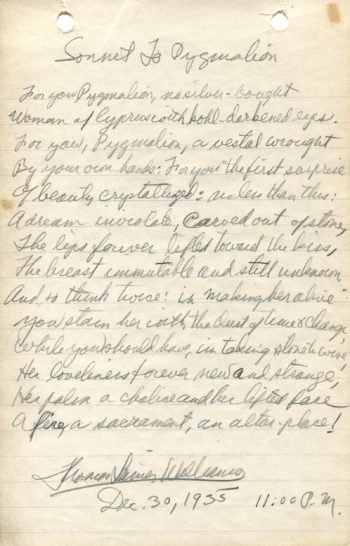 Sonnet To Pygmalion
For you Pygmalion, no silver-bought
Woman of Cyprus with kohl-darkened eyes.
For you, Pygmalion, a vestal wrought
By your own hands: For you the first surprise
Of beauty crystallized: no less than this:
A dream inviolate carved out of stone,
The lips forever lifted toward the kiss,
The breast immutable and still unknown
And so think twice: in making her alive
You stain her with the dust of time & change
While you should have, in taking stone to wive,
Her loveliness forever new and strange,
Her palm a chalice and her lifted face
A fire, a sacrament, an altar-place!
Thomas Lanier Williams
Dec. 30, 1935 11:00 P.M.